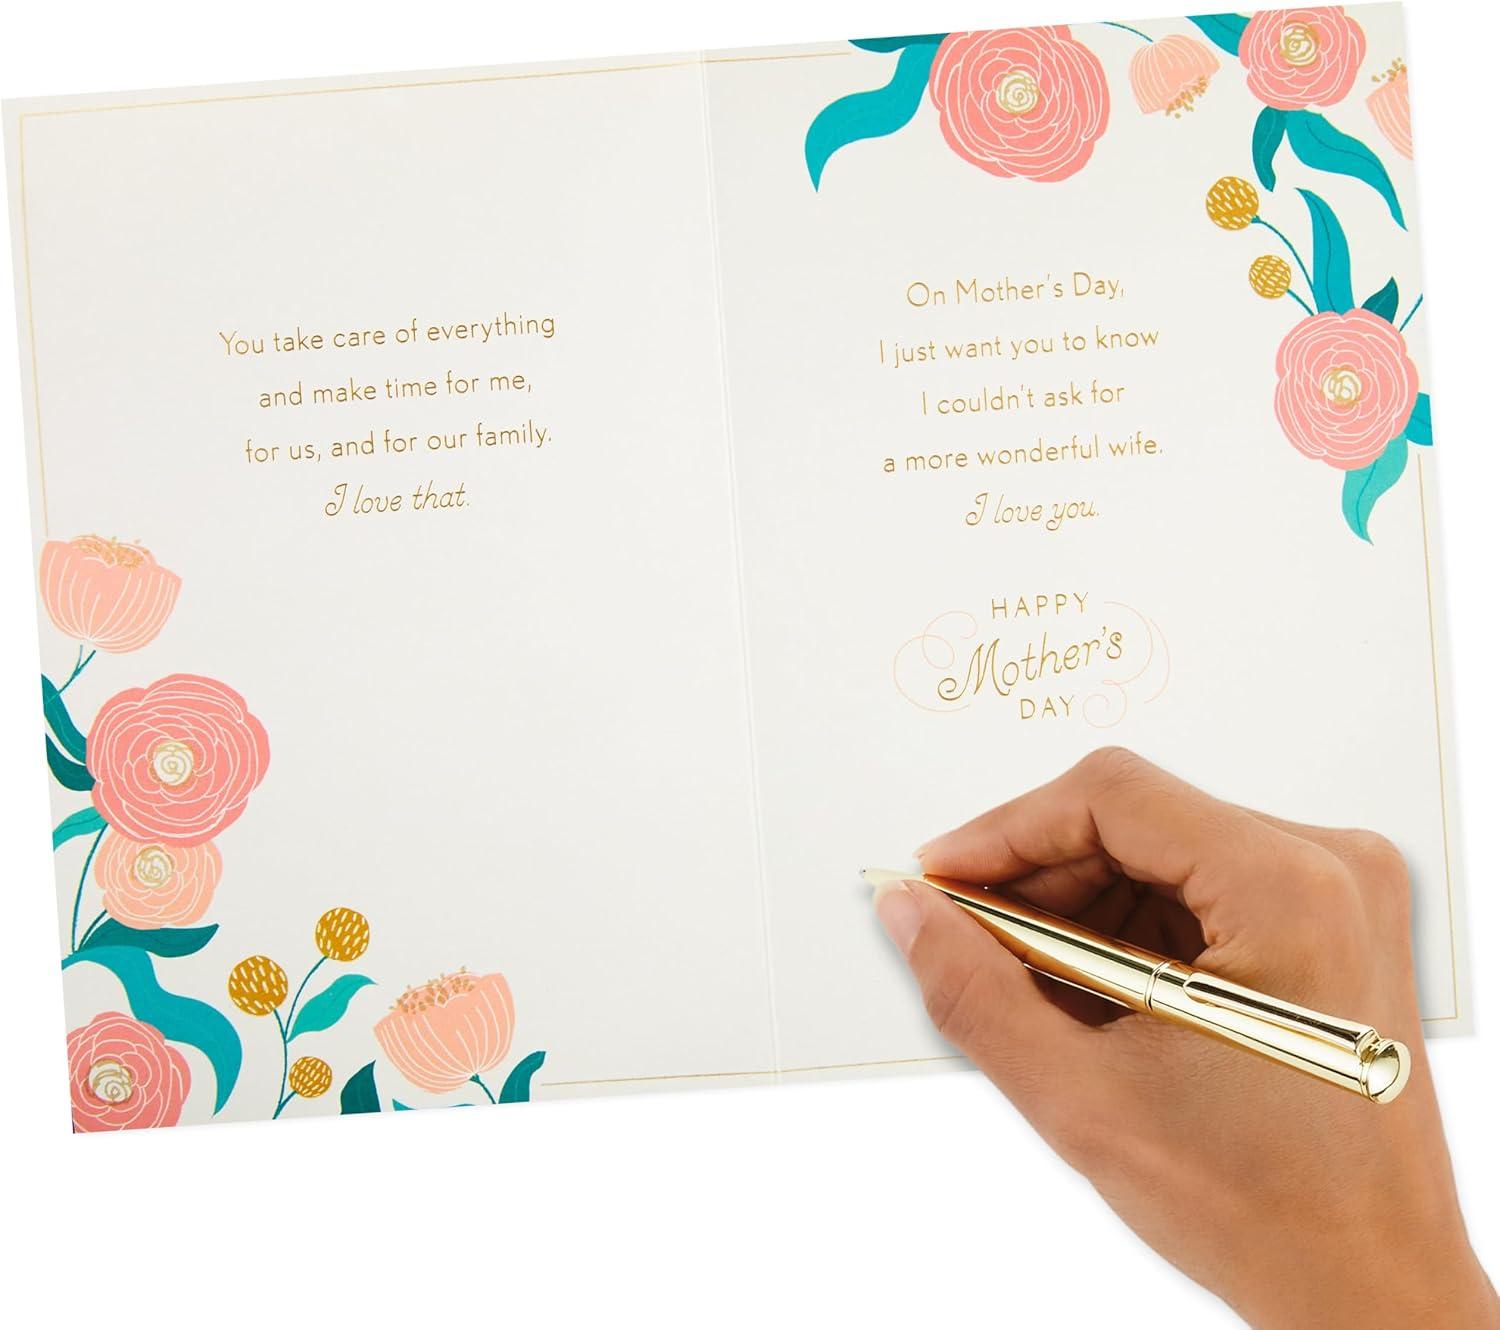 You take care of everything
and make time for me,
for us, and for our family.
I love that.
On Mother's Day,
I just want you to know
I couldn't ask for
a more wonderful wife.
I love you.
HAPPY
Mother's
DAY